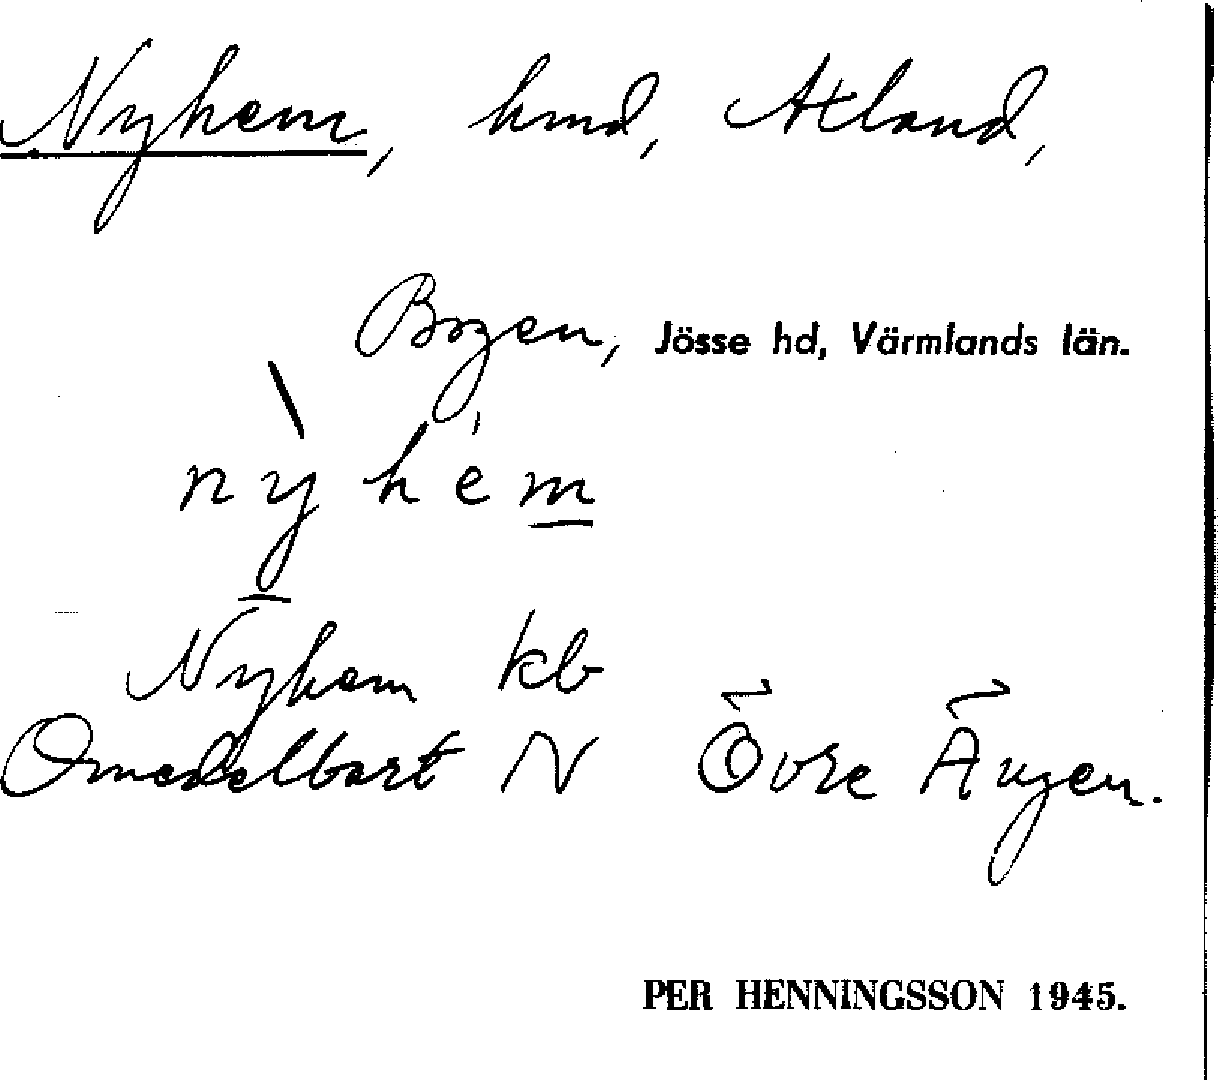 Nyhem, hmd, Ålland,
Bogen, Jösse hd, Värmlands län.
nỳhém
Nyhem kb
Omedelbart N Övre Ängen.
PER HENNINGSSON 1945.